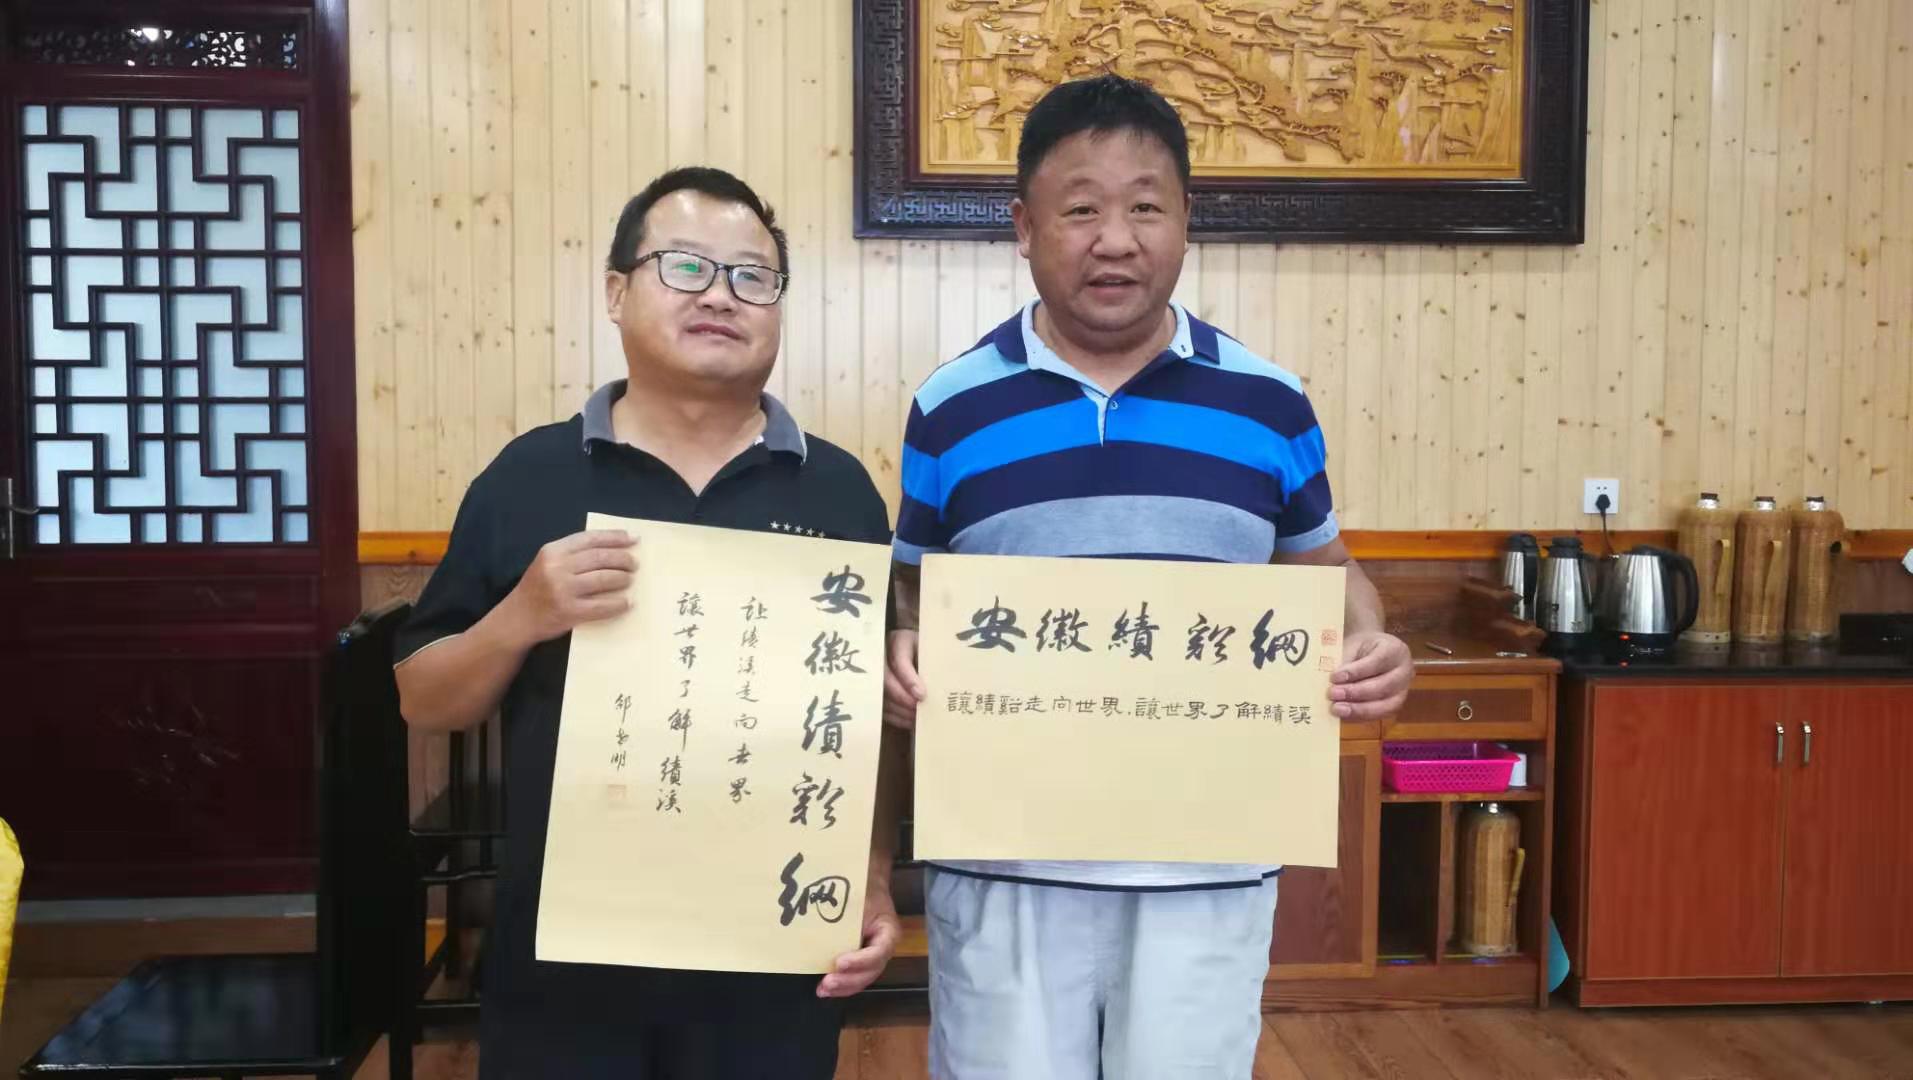 安徽績谿網
让績溪走向世界
讓世界了解績溪
安徽績谿網
讓績谿走向世界，讓世界了解績溪